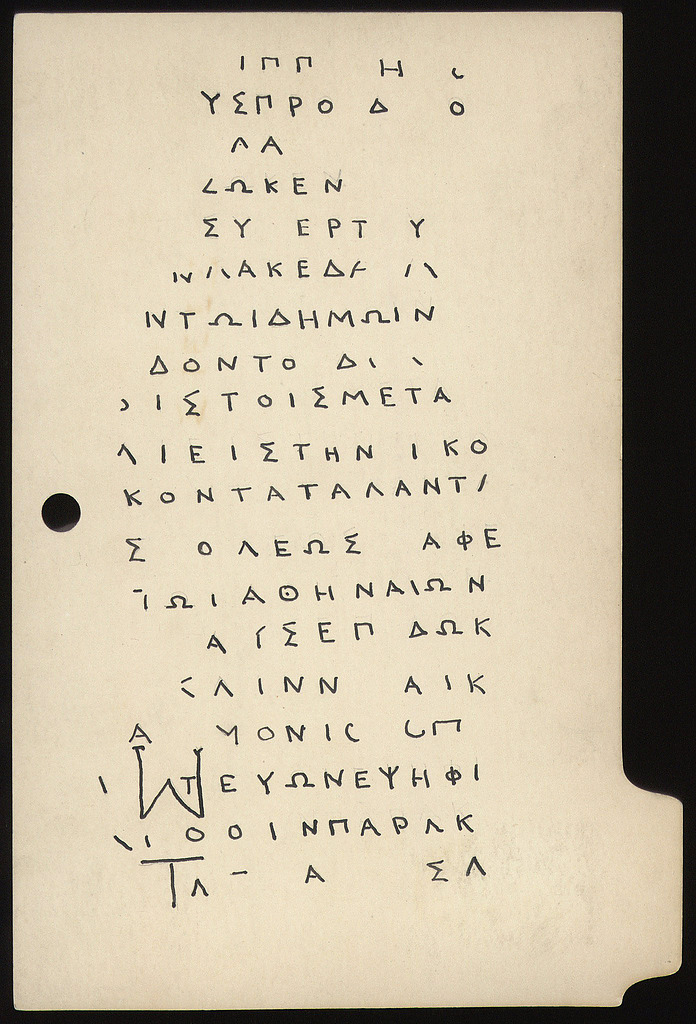 ΙΠΠ Η
ΥΣΠΡΟ Δ Ο
ΛΑ
ΩΚΕΝ
ΣΥ ΕΡΤ Υ
ΑΚΕΔ
ΝΤΩΙΔΗΜΩΙΝ
ΔΟΝΤΟ Δ
ΙΣΤΟΙΣΜΕΤΑ
ΛΙΕΙΣΤΗΝ ΙΚΟ
ΚΟΝΤΑΤΑΛΑΝΤ
Σ ΟΛΕΩΣ ΑΦΕ
ΩΙΑΘΗΝΑΙΩΝ
Α ΣΕΠ ΔΩΚ
ΛΙΝΝ ΑΙΚ
Α ΜΟΝΙ Π
Ι ΤΕΥΩΝΕΨΗΦΙ
ΟΟΙΝΠΑΡΛΚ
Λ Α ΣΛ